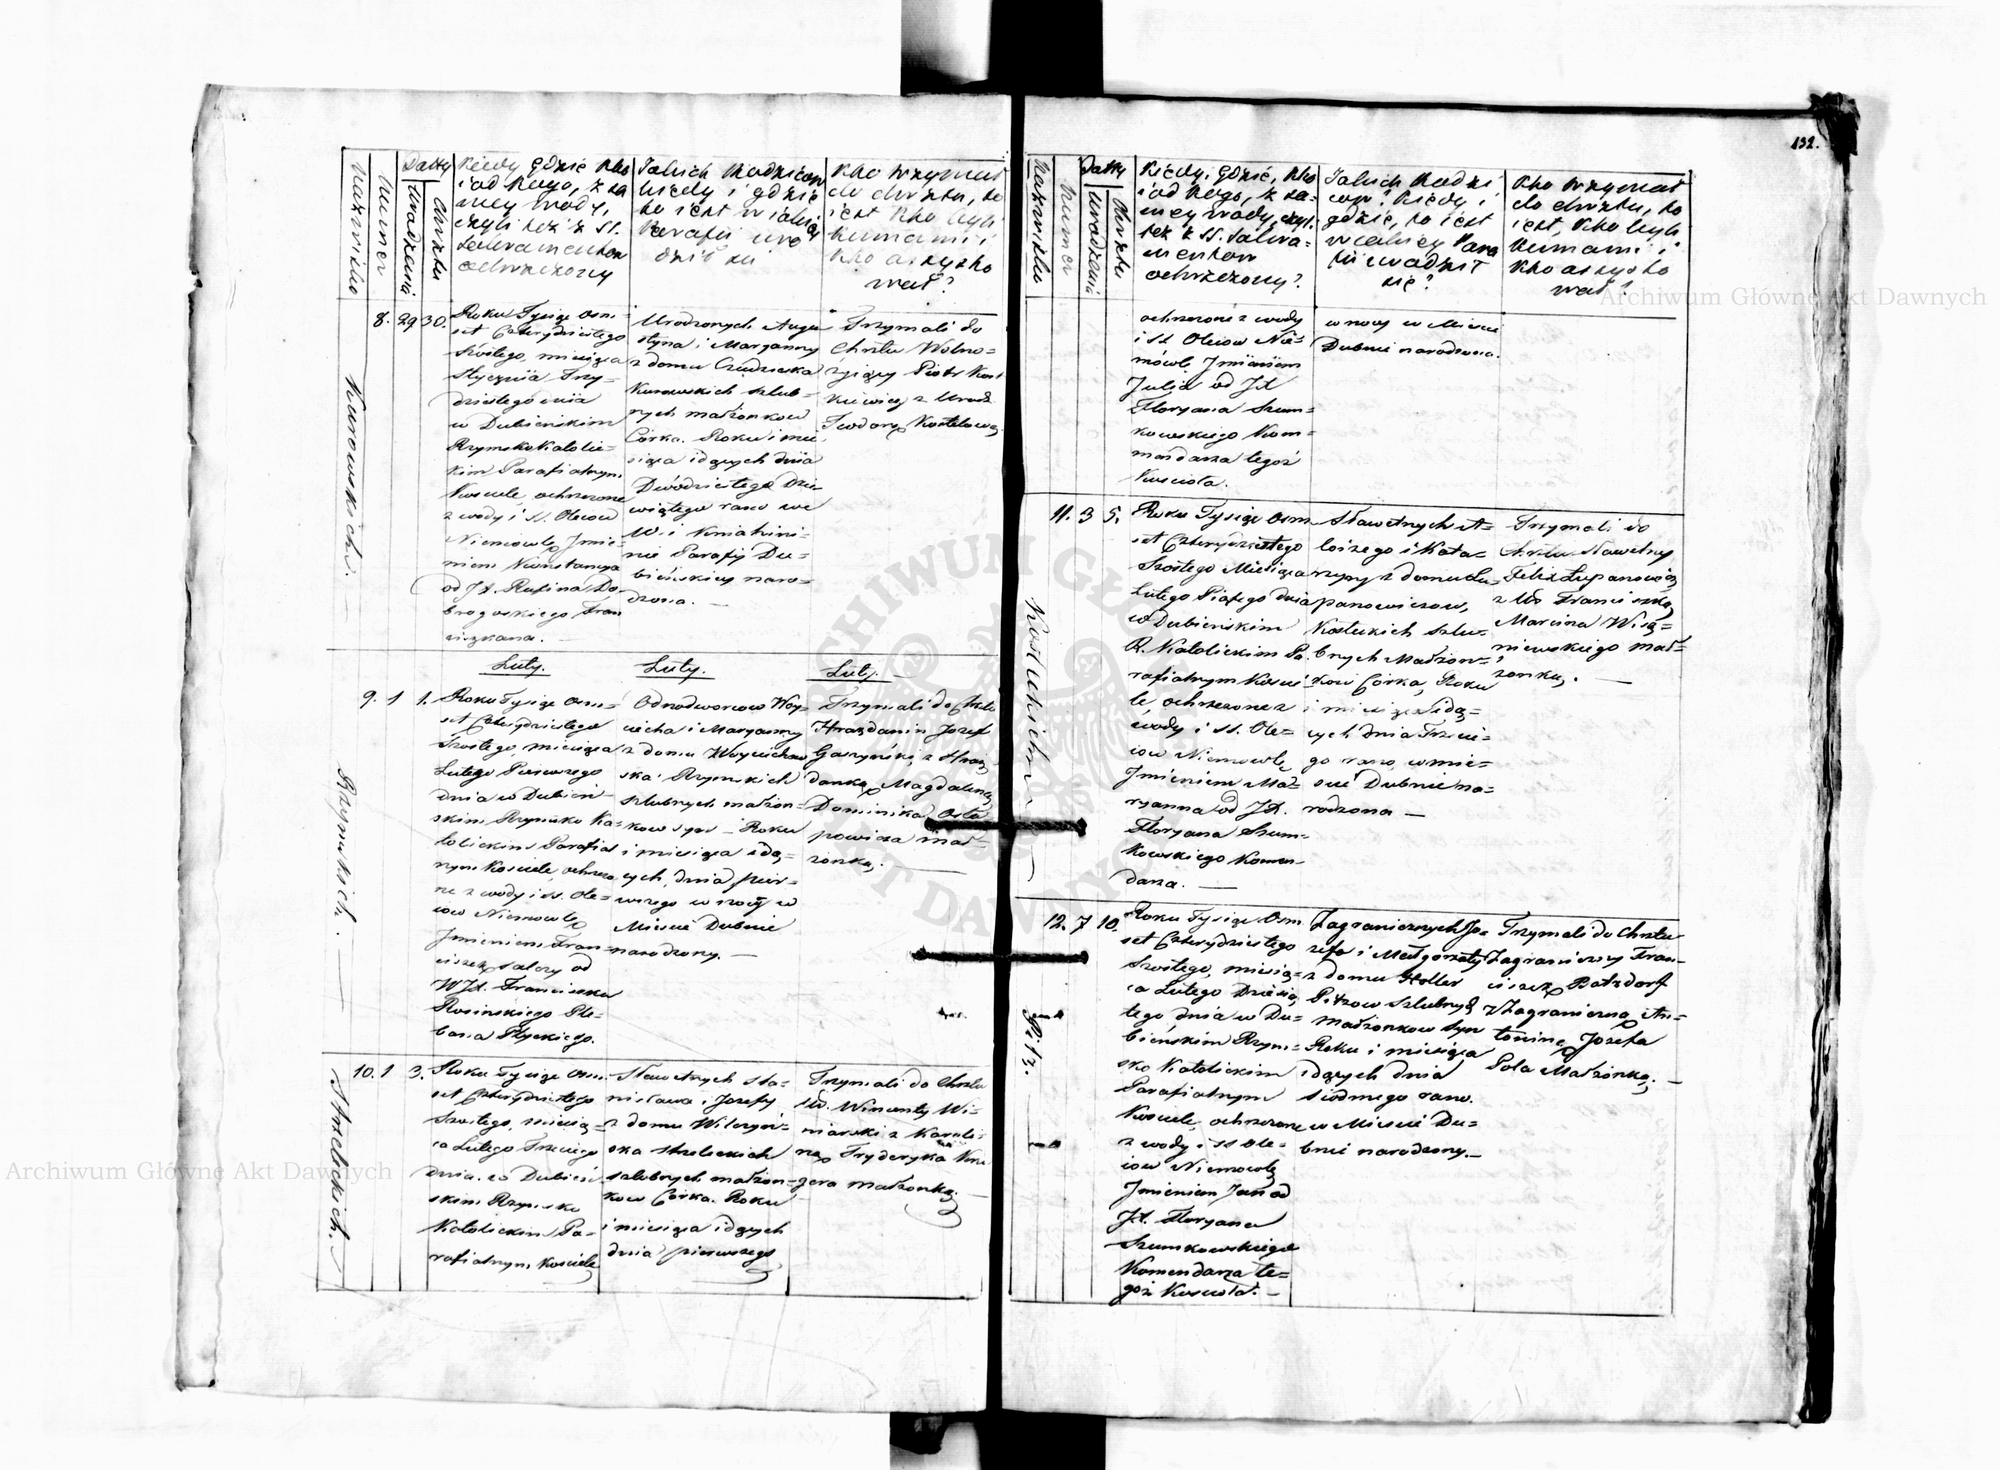 132.
Nazwisko
Numer
Datty
Urodzenia
Chrztu
Kiedy, gdzie kto
i od kogo, z sa
mey wody,
czyli też z SS.
Sakramentow
ochrzczony
Jakich Rodziców
kiedy i gdzie
to iest w iakiey
Parafii uro
dził się
Kto trzymał
do chrztu, to
iest kto byli
kumami i
kto assysto
wał?
Kurowskich.
8. 29 30.
Roku Tysiąc Osm=
set Czterydziestego
Szóstego, miesiąca
Stycznia Trzy=
dziestego dnia
w Dubieńskim
Rzymsko Katolic=
kim Parafialnym
Kosciele, ochrzczone
z wody i SS. Oleiow
Niemowlę Jmie=
niem Konstancya
od Jx. Rufina Do=
brogoskiego Fran
ciszkana.
Urodzonych Augu
styna i Maryanny
z domu
Kurowskich szlub=
nych małżonkow
Córka. Roku i mie
siąca idących dnia
Dwódziestego Dzie
wiątego rano we
W. i
nie Parafij Du=
bieńskiey naro=
dzona.
Trzymali do
Chrztu Wolno=
żyiący Piotr Kost
kiewicz z Urodz
Teodorą
Luty.
Luty.
Luty.
Rzymskich.
9. 1 1.
Roku Tysiąc Osm=
set Czterydziestego
Szóstego, miesiąca
Lutego Pierwszego
dnia w Dubień=
skim Rzymsko Ka=
tolickim Parafial
nym Kosciele, ochrzczo
ne z wody i SS. Ole=
iow Niemowlę
Jmieniem Fran=
ciszek Salezy od
WJx. Franciszka
Rosińskiego Ple=
bana Ptyckiego.
Odnodworcow Woy=
ciecha i Maryanny
z domu Woyciechow
ska Rzymskich
szlubnych małżon=
kow syn – Roku
i miesiąca idą=
cych, dnia pier=
wszego w nocy w
Miescie Dubnie
narodzony. –
Trzymali do Chrztu
Hrażdanin Jozef
Gaszyński, z Hraż
danką Magdaleną
Dominika Osta
powicza mał=
żonką.
Strzeleckich.
10. 1 3.
Roku Tysiąc Osm=
set Czterydziestego
Szóstego, miesią=
ca Lutego Trzeciego
dnia w Dubień
skim Rzymsko
Katolickim Pa=
rafialnym Kosciele
Sławetnych Sta=
nisława i Jozefy
z domu Wilczyń=
ska Strzeleckich
szlubnych małżon=
kow Córka. Roku
i miesiąca idących
dnia pierwszego
Trzymali do Chrztu
Ur. Wincenty Wi=
niarski z Karoli
ną Fryderyka
gera małżonką.
Nazwisko
Numer
Datty
Urodzenia
Chrztu
Kiedy, gdzie, kto
i od kogo, z sa=
mey wody, czyli
też z SS. Sakra=
mentow
ochrzczony?
Jakich Rodzi
cow? kiedy i
gdzie, to iest
w iakiey Para
fii urodził
się?
Kto trzymał
do chrztu, to
iest, kto byli
kumami i
kto assysto
wał?
ochrzczone z wody
i SS. Oleiow Nie=
mówlę Jmieniem
Julia od Jx
Floryana Szum=
kowskiego Kom=
mendarza tegoż
Kosciola.
w nocy w Miescie
Dubnie narodzona.
Kostuckich.
11. 3 5.
Roku Tysiąc Osm
set Czterydziestego
Szóstego Miesiąca
Lutego Piątego dnia
w Dubieńskim
R. Katolickim Pa
rafialnym Koscie=
le, ochrzczone z
wody i SS. Ole=
iow Niemowlę
Jmieniem Ma=
ryanna od Jx.
Floryana Szum=
kowskiego Komen=
darza. –
Sławetnych A=
loizego i Kata=
rzyny z domu Łu=
panowiczow,
Kostuckich szlu=
bnych Małżon=
kow Córka, Roku
i miesiąca idą=
cych dnia Trzecie=
go rano, w mie=
scie Dubnie na=
rodzona –
Trzymali do
Chrztu Sławetny
Felix Łupanowicz
z Ur. Franciszką
Marcina Wisz=
niewskiego mał=
żonką. –
Pitz.
12. 7 10.
Roku Tysiąc Osm
set Czterydziestego
Szóstego, miesią=
ca Lutego Dziesią
tego dnia w Du=
bieńskim Rzym=
sko Katolickim
Parafialnym
Kosciele, ochrzczone
z wody i SS Ole=
iow Niemowlę
Jmieniem Jan od
Jx. Floryana
Szumkowskiego
Komendarza te=
goż Kosciola. –
Zagranicznych Jo=
zefa i Małgorzaty
z domu Holler
Pitzow Szlubnych
Małżonkow Syn
Roku i miesiąca
idących dnia
Siodmego rano.
w Miescie Du=
bnie narodzony. –
Trzymali do Chrztu
Zagraniczny Fran=
ciszek Batzdorf
z Zagraniczną An=
toniną Jozefa
Pola Małżonką. –
Archiwum Główne Akt Dawnych
Archiwum Główne Akt Dawnych
ARCHIWUM GŁÓWNE AKT DAWNYCH